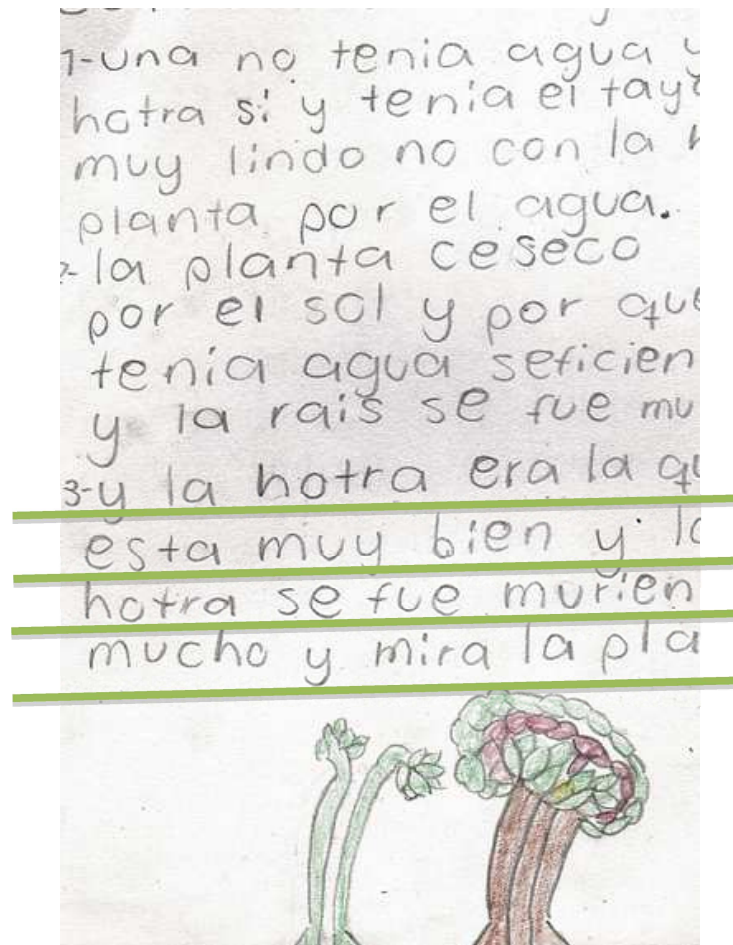 1-una no tenia agua y
hotra si y tenia el tay
muy lindo no con la
planta por el agua.
2-la planta ceseco
por el sol y por que
tenia agua seficien
y la rais se fue mu
3-y la hotra era la qu
esta muy bien y la
hotra se fue murien
mucho y mira la pla